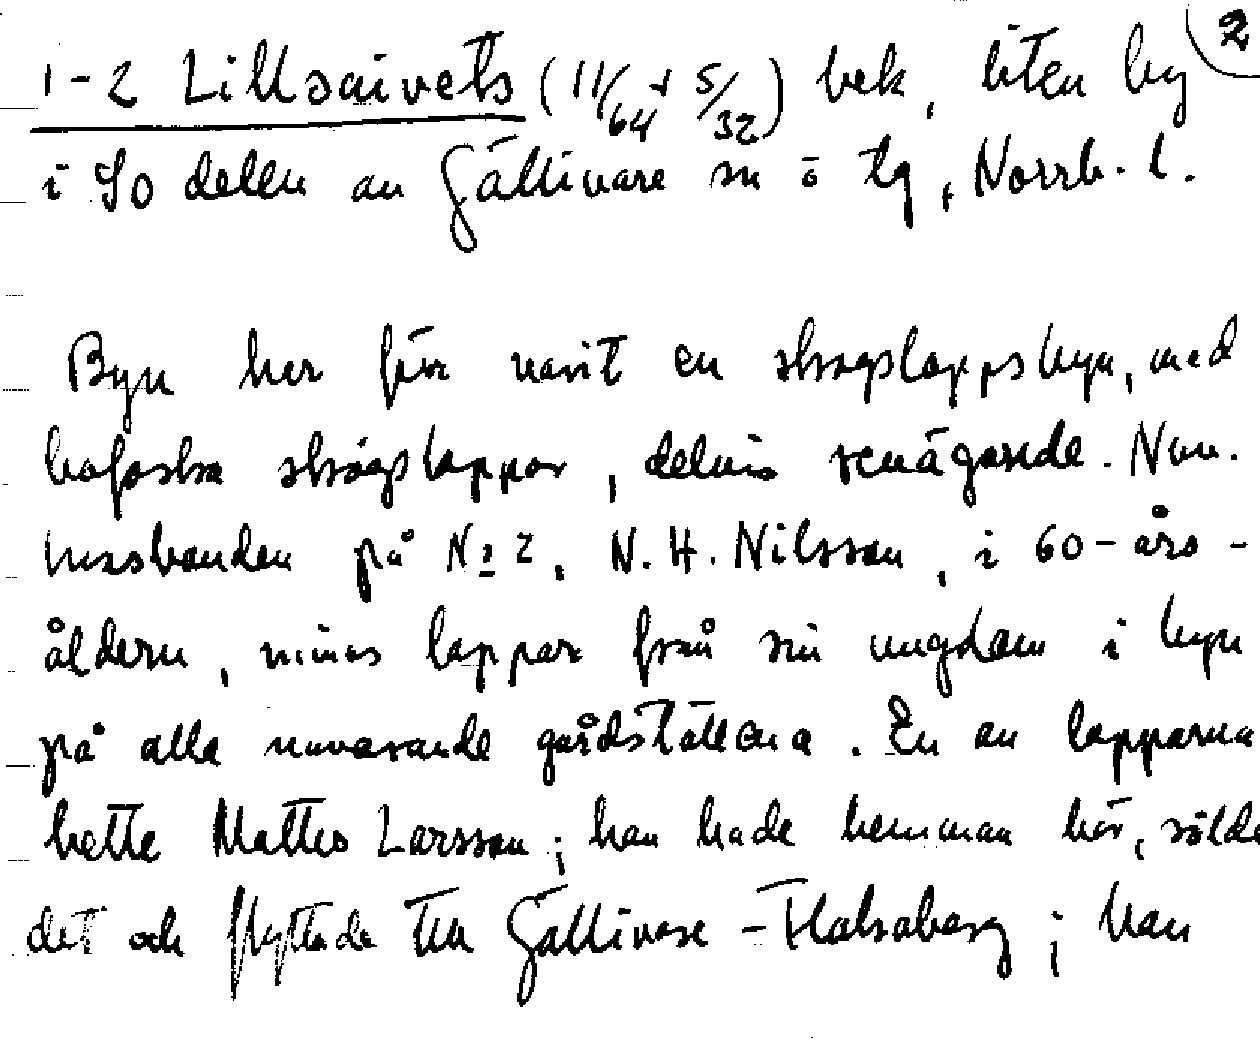 2
1-2 Lillsaivets (11/64 + 5/32) bek, liten by
i SO delen av Gällivare sn o tg, Norrb. l.
Byn har förr varit en skogslappsbyn, med
bofasta skogslappar, delvis renägande. Nuv.
husbonden på No 2, N. H. Nilsson, i 60-års-
åldern, minns lappar från sin ungdom i byn
på alla nuvarande gårdställena. En av lapparna
hette Mattes Larsson; han hade hemman här, sålde
det och flyttade till Gällivare - Flakaberg; han